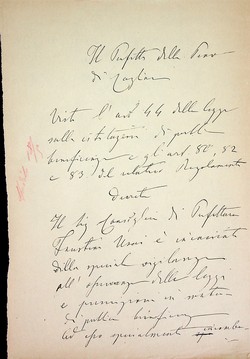 Il Prefetto della Prov
di Cagliari
Visto l'art 44 della legge
sulle istituzioni di pubb
beneficenza e gli art 80, 82
e 83 del relativo Regolamento
Decreta
Il Sig Consigliere di Prefettura
è incaricato
della special vigilanza
all'osservanza della legge
e
di pubblica beneficenza
Ad esso specialmente incombe